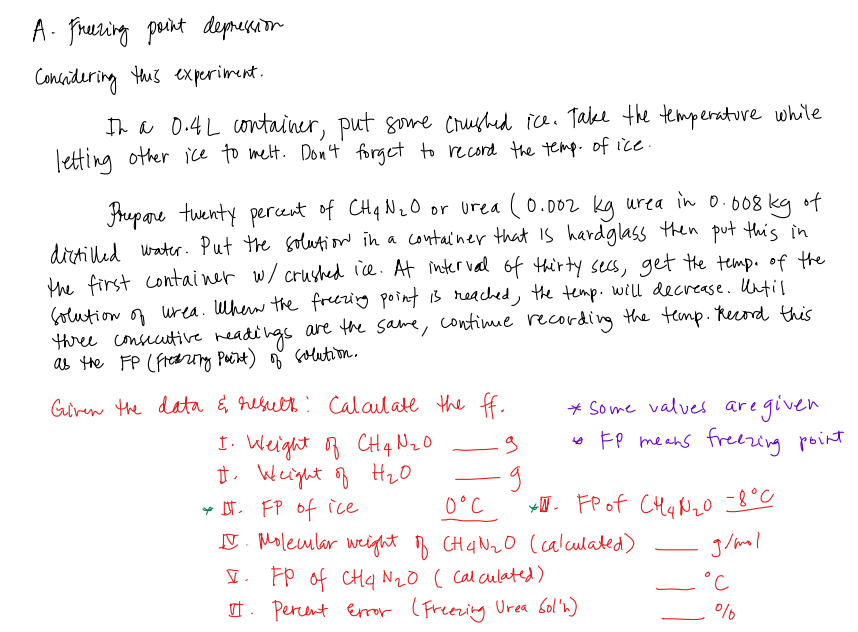 A. Freezing point depression
Considering this experiment.
In a 0.4L container, put some crushed ice. Take the temperature while
letting other ice to melt. Don't forget to record the temp. of ice.
Prepare twenty percent of CH4N2O or urea (0.002 kg urea in 0.008 kg of
distilled water. Put the solution in a container that is hardglass then put this in
the first container w/ crushed ice. At interval of thirty secs, get the temp. of the
solution of urea. When the freezing point is reached, the temp. will decrease. Until
three consecutive readings are the same, continue recording the temp. Record this
as the FP (Freezing Point) of solution.
Given the data & results: Calculate the ff.
* Some values are given
* FP means freezing point
I. Weight of CH4N2O ____ g
II. Weight of H2O ____ g
* III. FP of ice 0°C * IV. FP of CH4N2O -8°C
IV. Molecular weight of CH4N2O (calculated) ____ g/mol
V. FP of CH4N2O (calculated) ____ °C
VI. Percent Error (Freezing Urea Sol'n) ____ %